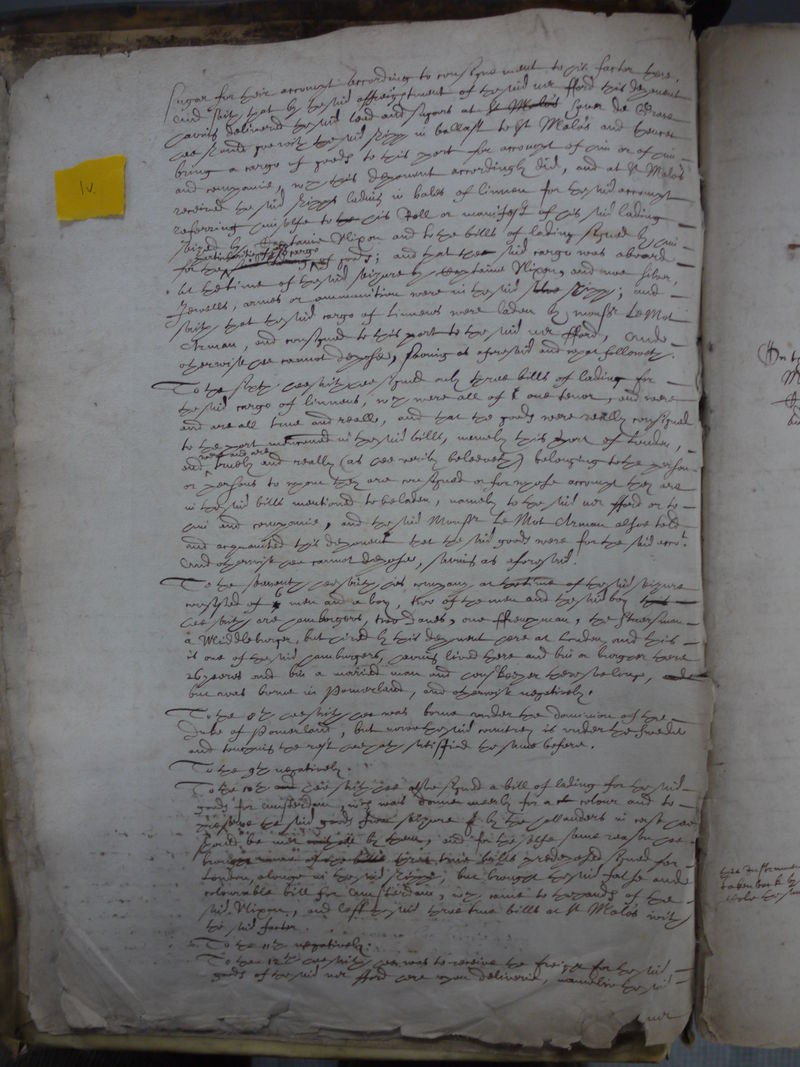 1v.
sugar for their accompt according to consignement to his factor there,
and saith that by the said affreightment of the said mr fford this deponent
having delivered the said and sugars at St Malo's
hee should goe with the said shipp in ballast to St Malo's and thence
bring a cargo of goods to this port for accompt of him or of him
and companie, which this deponent accordingly did, and at St Malo's
received the said shipps lading in bales of linnen for the said accompt
referring himselfe to the his Roll or manifest of his said lading
seized by Captaine Nixon and to the bills of lading signed by him
for the cargo of goods; and that the said cargo was aboard
at the time of the said seizure by Captaine Nixon, and noe silver,
Jewells, armes or ammunition were in the said shipp; and
saith that the said cargo of linnens were laden by monsr Le Mot
Arman, and consigned to this port to the said mr fford, And
otherwise hee cannot depose, saving as aforesaid and now followeth.
To the sixth hee saith hee signed only three bills of lading for
the said cargo of linnens, which were all of one tenor, and were
and are all true and reall, and that the goods were really consigned
to the port mentioned in the said bills, namely this port of London,
were and are
and truely and really (as hee verily beleeveth) belonging to the person
or persons to whom they are consigned or for whose accompt they are
in the said bills mentioned to be laden, namely to the said mr fford or to
him and companie, and the said Monsr Le Mot Arman alsoe told
and acquainted this deponent that the said goods were for the said accot.
And otherwise hee cannot depose, saving as aforesaid.
To the seaventh hee saith his company at the time of the said seizure
consisted of 6 men and a boy, two of the men and the said boy
hee saith are hamburgers, two danes, one ffrenchman, the stearsman
a Middleburger, but hired by this deponent here at London, and this
is one of the said hamburgers, having lived there and bin a burgher there
26 yeares and bin a maried man and housekeeper there soe longe,
but was borne in Pomerland, and otherwise negatively.
To the 8th hee saith hee was borne under the dominion of the
Duke of Pomerland, but now the said countrey is under the Swedes
and touching the rest hee hath satisfied the same before.
To the 9th negatively.
To the 10th hee saith hee alsoe signed a bill of lading for the said
goods for Amsterdam, which was donne meerly for a colour and to
preserve the said goods from seizure by the hollanders in case hee
should be met by them, and for the selfe same reason hee
brought none of the three true bills predeposed signed for
London alonge in the said shipp, but brought the said false and
colourable bill for Amsterdam, which came to the hands of the
said Nixon, and left the said three true bills at St Malo's with
the said factor.
To the 11th negatively.
To the 12th hee saith hee was to receive the freight for the said
goods of the said mr fford here upon deliverie, namelie the said
mr